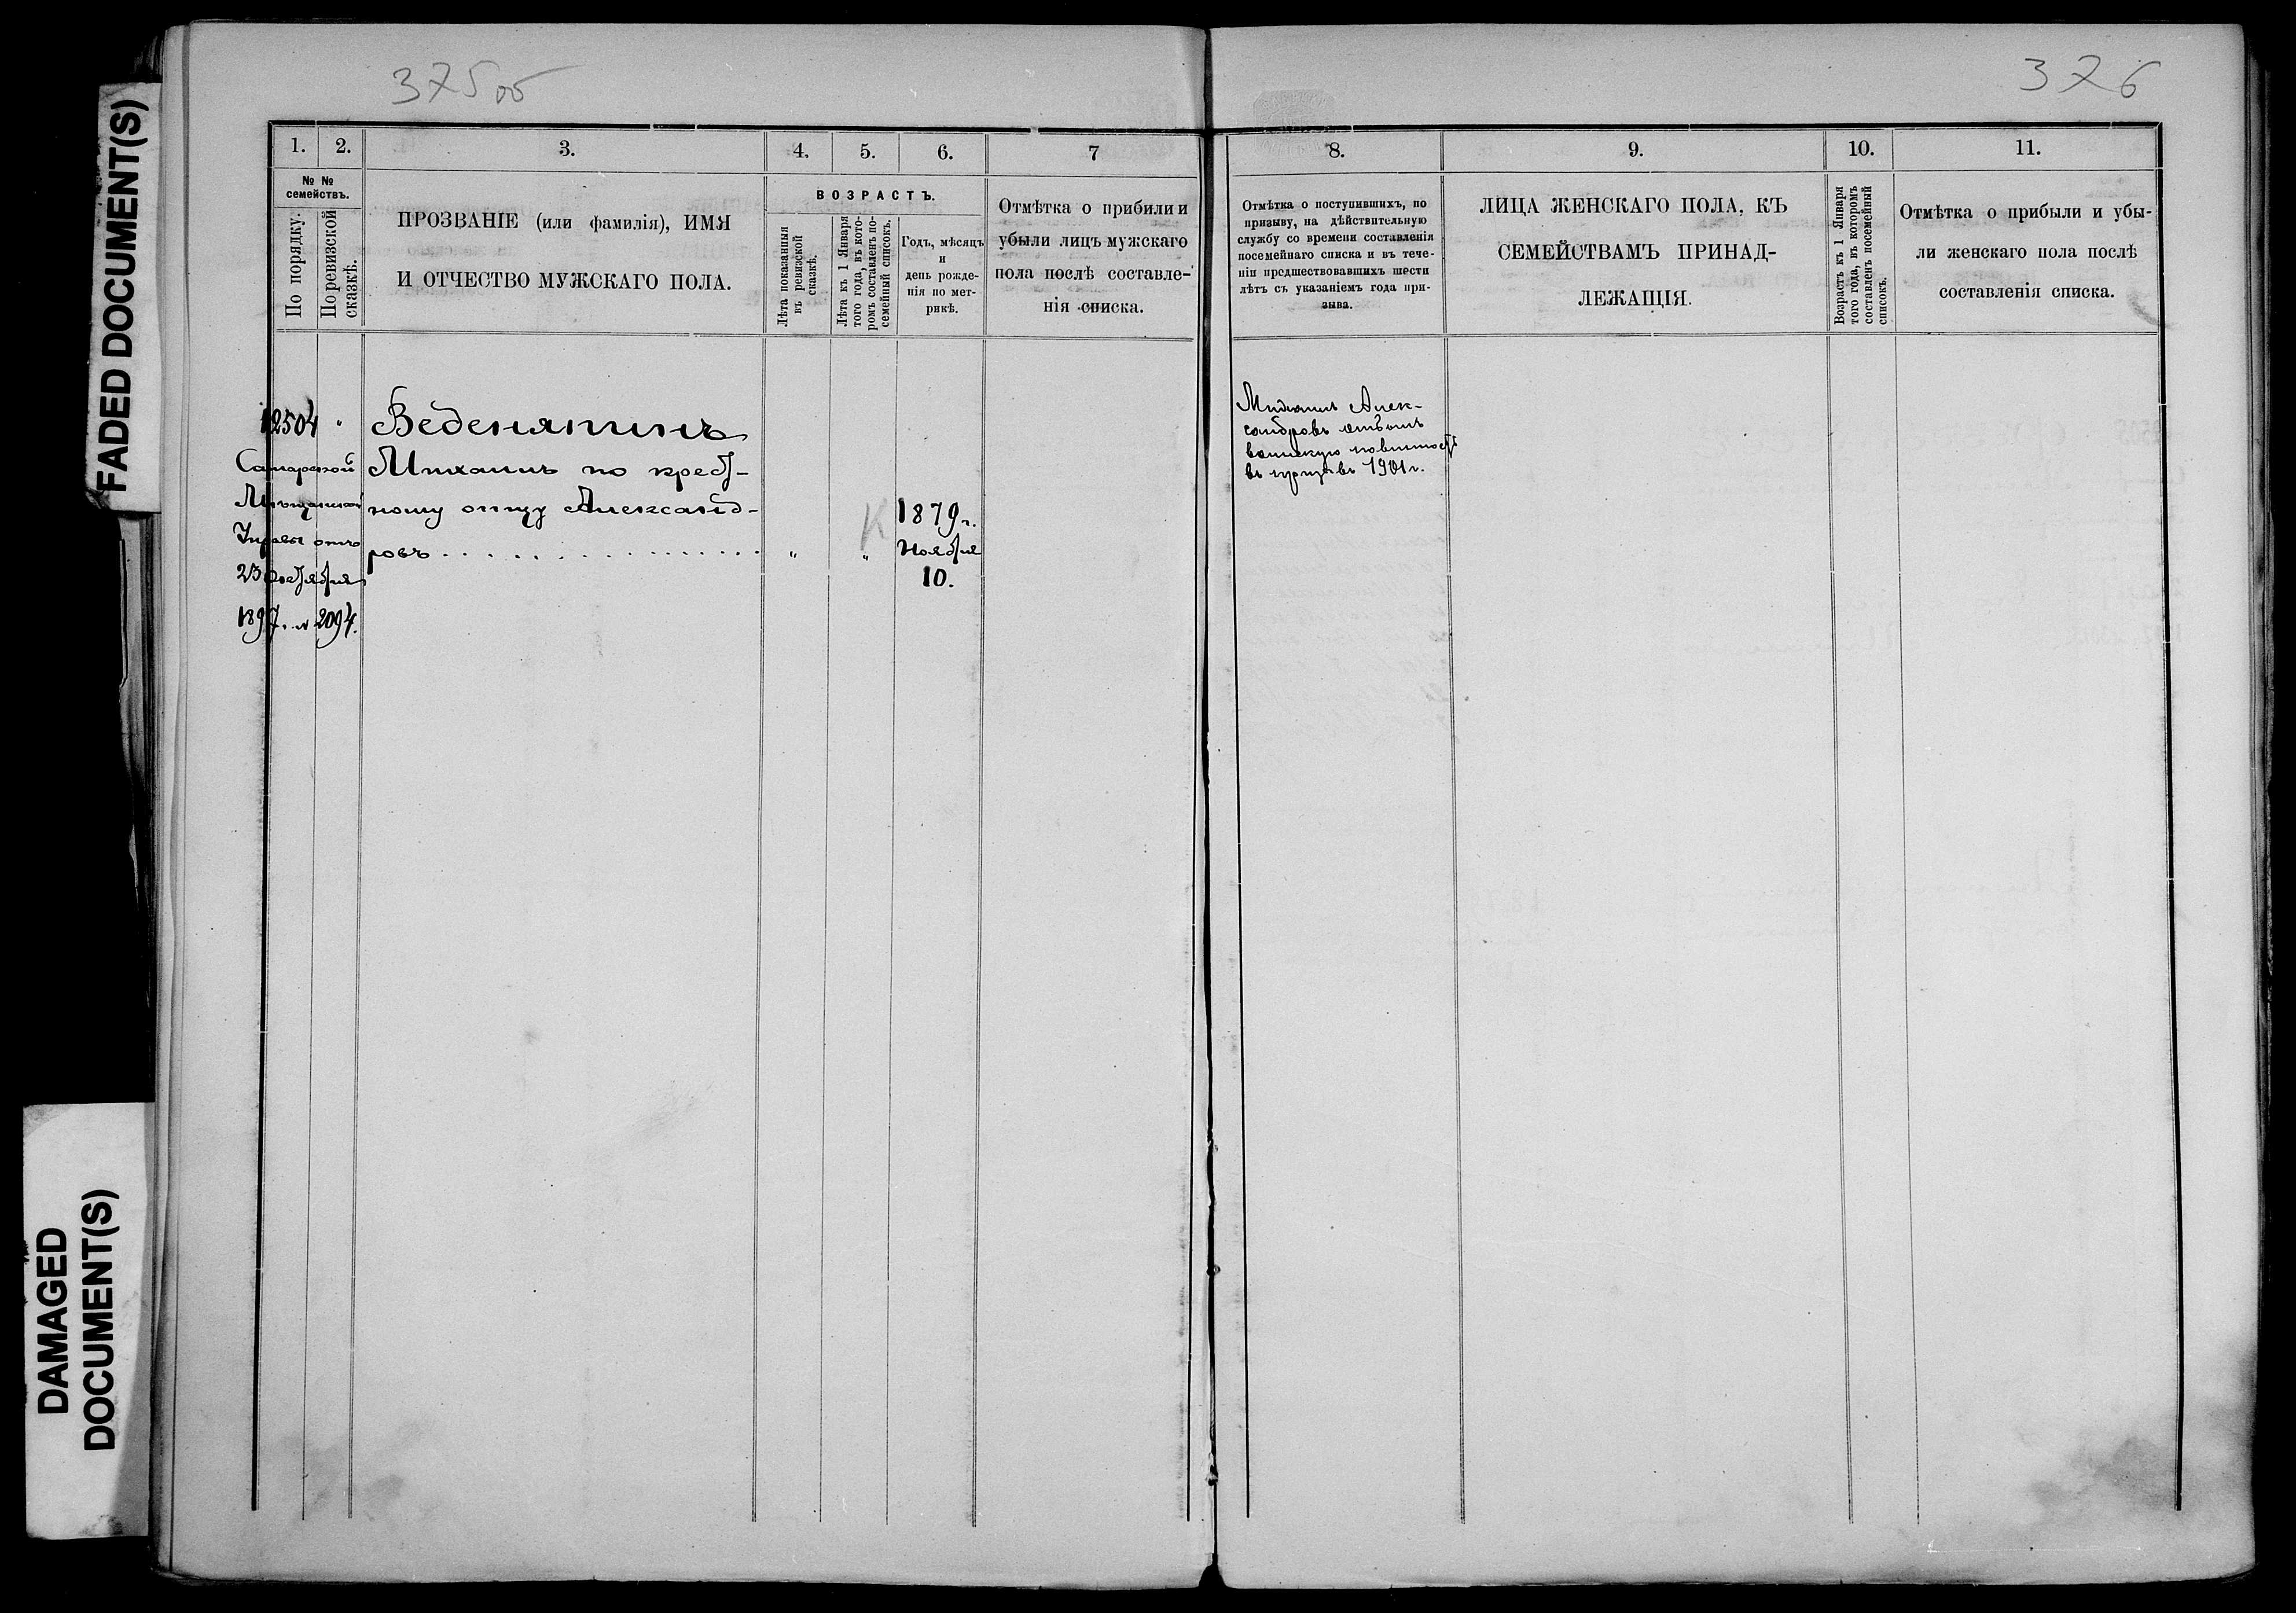 FADED DOCUMENT(S)
DAMAGED
DOCUMENT(S)
375 об
376
1. 2. 3. 4. 5. 6. 7
№ №
семействъ.
По порядку.
По ревизской
сказкѣ.
ПРОЗВАНІЕ (или фамилія), ИМЯ
И ОТЧЕСТВО МУЖСКАГО ПОЛА.
ВОЗРАСТЪ.
Лѣта показанныя
въ ревизской
сказкѣ.
Лѣта къ 1 Января
того года, въ кото-
ромъ составленъ по-
семейный списокъ.
Годъ, мѣсяцъ
и
день рожде-
нія по мет-
рикѣ.
Отмѣтка о прибили и
убыли лицъ мужскаго
пола послѣ составле-
нія списка.
12504 "
Самарской
Мѣщанской
Управы отъ
23 Октября
1897. № 2094.
Веденяпинъ
Михаилъ по крест-
ному отцу Александ-
ровъ . . . . . . . . . . . . . . . . . " "
К
1879 г.
Ноября
10.
8. 9. 10. 11.
Отмѣтка о поступившихъ, по
призыву, на дѣйствительную
службу со времени составленія
посемейнаго списка и въ тече-
ніи предшествовавшихъ шести
лѣтъ съ указаніемъ года при-
зыва.
ЛИЦА ЖЕНСКАГО ПОЛА, КЪ
СЕМЕЙСТВАМЪ ПРИНАД-
ЛЕЖАЩІЯ.
Возрастъ къ 1 Января
того года, въ которомъ
составленъ посемейный
списокъ.
Отмѣтка о прибыли и убы-
ли женскаго пола послѣ
составленія списка.
Михаилъ Алек-
сандровъ отбылъ
воинскую повинность
въ призывъ 1901 г.